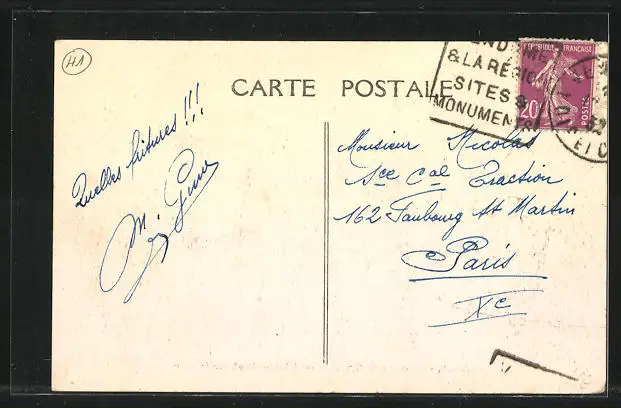 H1
CARTE POSTALE
& LA RÉGION
SITES &
MONUMENTS
REPUBLIQUE FRANÇAISE
20
POSTES
Quelles fritures !!!
M.
Monsieur Nicolas
Sce Cal Traction
162 Faubourg St Martin
Paris
Xe